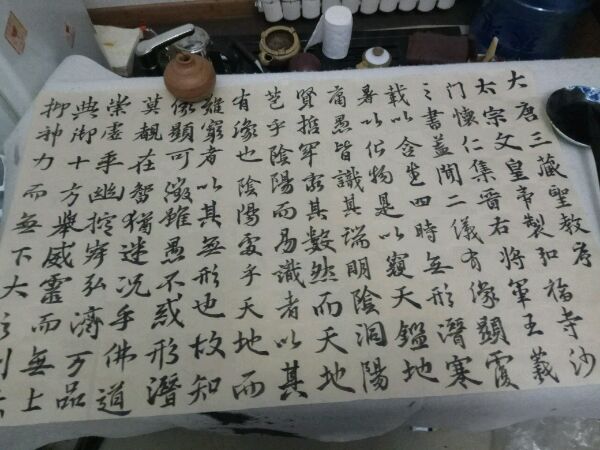 大唐三藏聖教序
太宗文皇帝製弘福寺沙
門懷仁集晋右將軍王羲
之書蓋聞二儀有像顯覆
載以含生四時無形潛寒
暑以化物是以窺天鑑地
庸愚皆識其端明陰洞陽
賢哲罕窮其數然而天地
苞乎陰陽而易識者以其
有像也陰陽處乎天地而
難窮者以其無形也故知
像顯可徵雖愚不惑形潛
莫覩在智猶迷況乎佛道
崇虛乘幽控寂弘濟万品
典御十方舉威靈而無上
抑神力而無下大之則